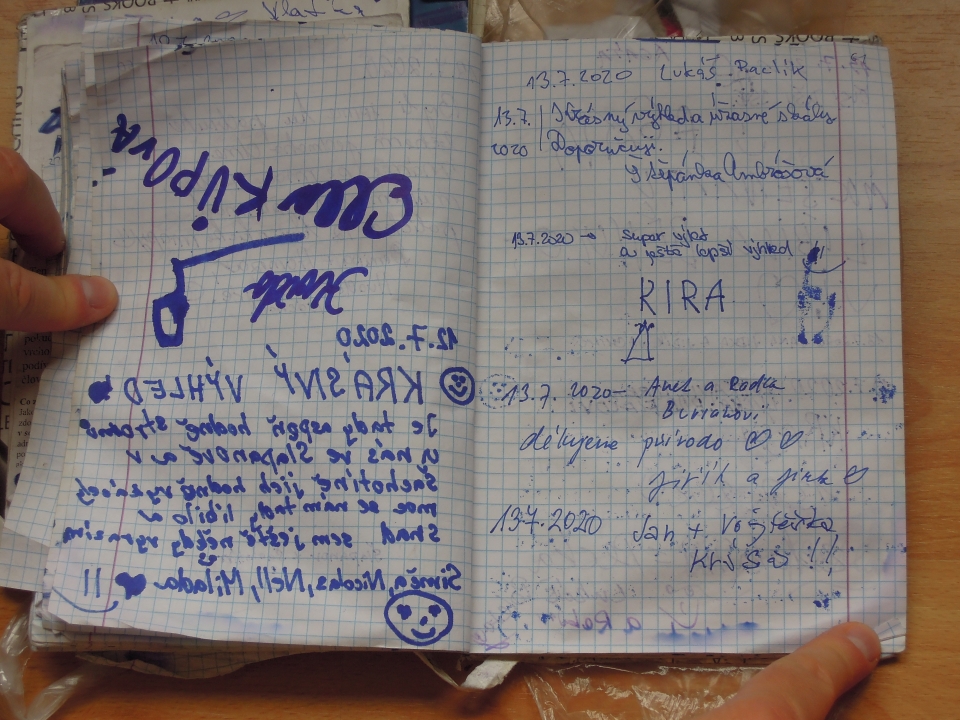 Ella KŮPOVÁ
12.7.2020
KRÁSNÝ VÝHLED
Je tady aspoň hodně stromů
u nás ve a v
jich hodně
moc se nám tady líbilo a
snad sem ještě někdy vyrazím
Simča, Nicolas, Nell, Milada
13.7.2020 Lukáš
13.7. Krásný výhled a úžasné skály
2020 Doporučuji.
Štěpánka Ambrožová
13.7.2020 → super výlet
a ještě lepší výhled
KIRA
13.7.2020 - Anet a Radka
Burianovi
děkujeme přírodo ♡ ♡
Jiřík a Jirka ♡
13.7.2020 Jan + Vojtěška
KRÁSA !!